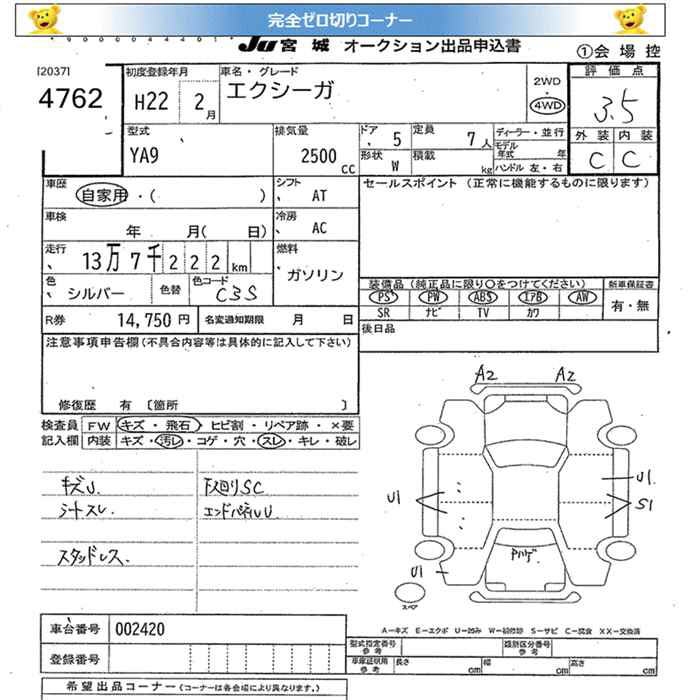 完全ゼロ切りコーナー
JU 宮城 オークション出品申込書
①会場控
[2037]
4762
初度登録年月
H22 2月
車名・グレード
エクシーガ
2WD
・
4WD
評価点
3.5
外装 内装
C C
型式
YA9
排気量
2500cc
ドア
、5
形状
W
定員
7人
積載
kg
ディーラー・並行
モデル年式 年
ハンドル 左・右
車歴
、自家用・( )
シフト
、AT
セールスポイント(正常に機能するものに限ります)
車検
年 月( 日)
冷房
、AC
走行
、13万7千222km
燃料
ガソリン
色
、シルバー
色替
色コード
C3S
装備品(純正品に限り○をつけてください)
PS PW ABS エアB AW
SR ナビ TV カワ
新車保証書
有・無
R券 14,750円
名変通知期限 月 日
後日品
注意事項申告欄(不具合内容等は具体的に記入して下さい)
修復歴 有 〔箇所 〕
検査員記入欄
FW キズ・飛石 ヒビ割・リペア跡・×要
内装 キズ・汚レ・コゲ・穴・スレ・キレ・破レ
キズU
シートスレ
スタッドレス.
下廻りSC
エンドパネルU
A2 A2
U1
U1
S1
Pハゲ
U1
スペア
A－キズ E－エクボ U－凹み W－補修跡 S－サビ C－腐食 XX－交換済
車台番号 002420
登録番号
型式指定番号 参考
類別区分番号 参考
車庫証明用 参考
長さ cm
幅 cm
高さ cm
希望出品コーナー(コーナーは各会場により異なります。)